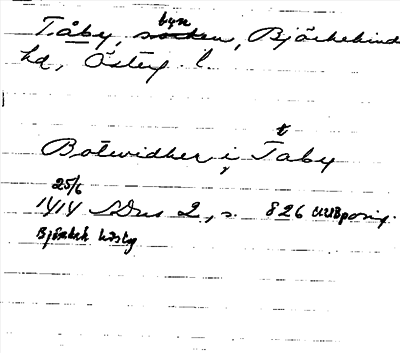 Tåby, socken byn, Björkekinds
hd, Österg. l.
Botwidher i Taby t
25/6
1414 SDns 2, s. 826 UUB perg.
Björkek hdsting